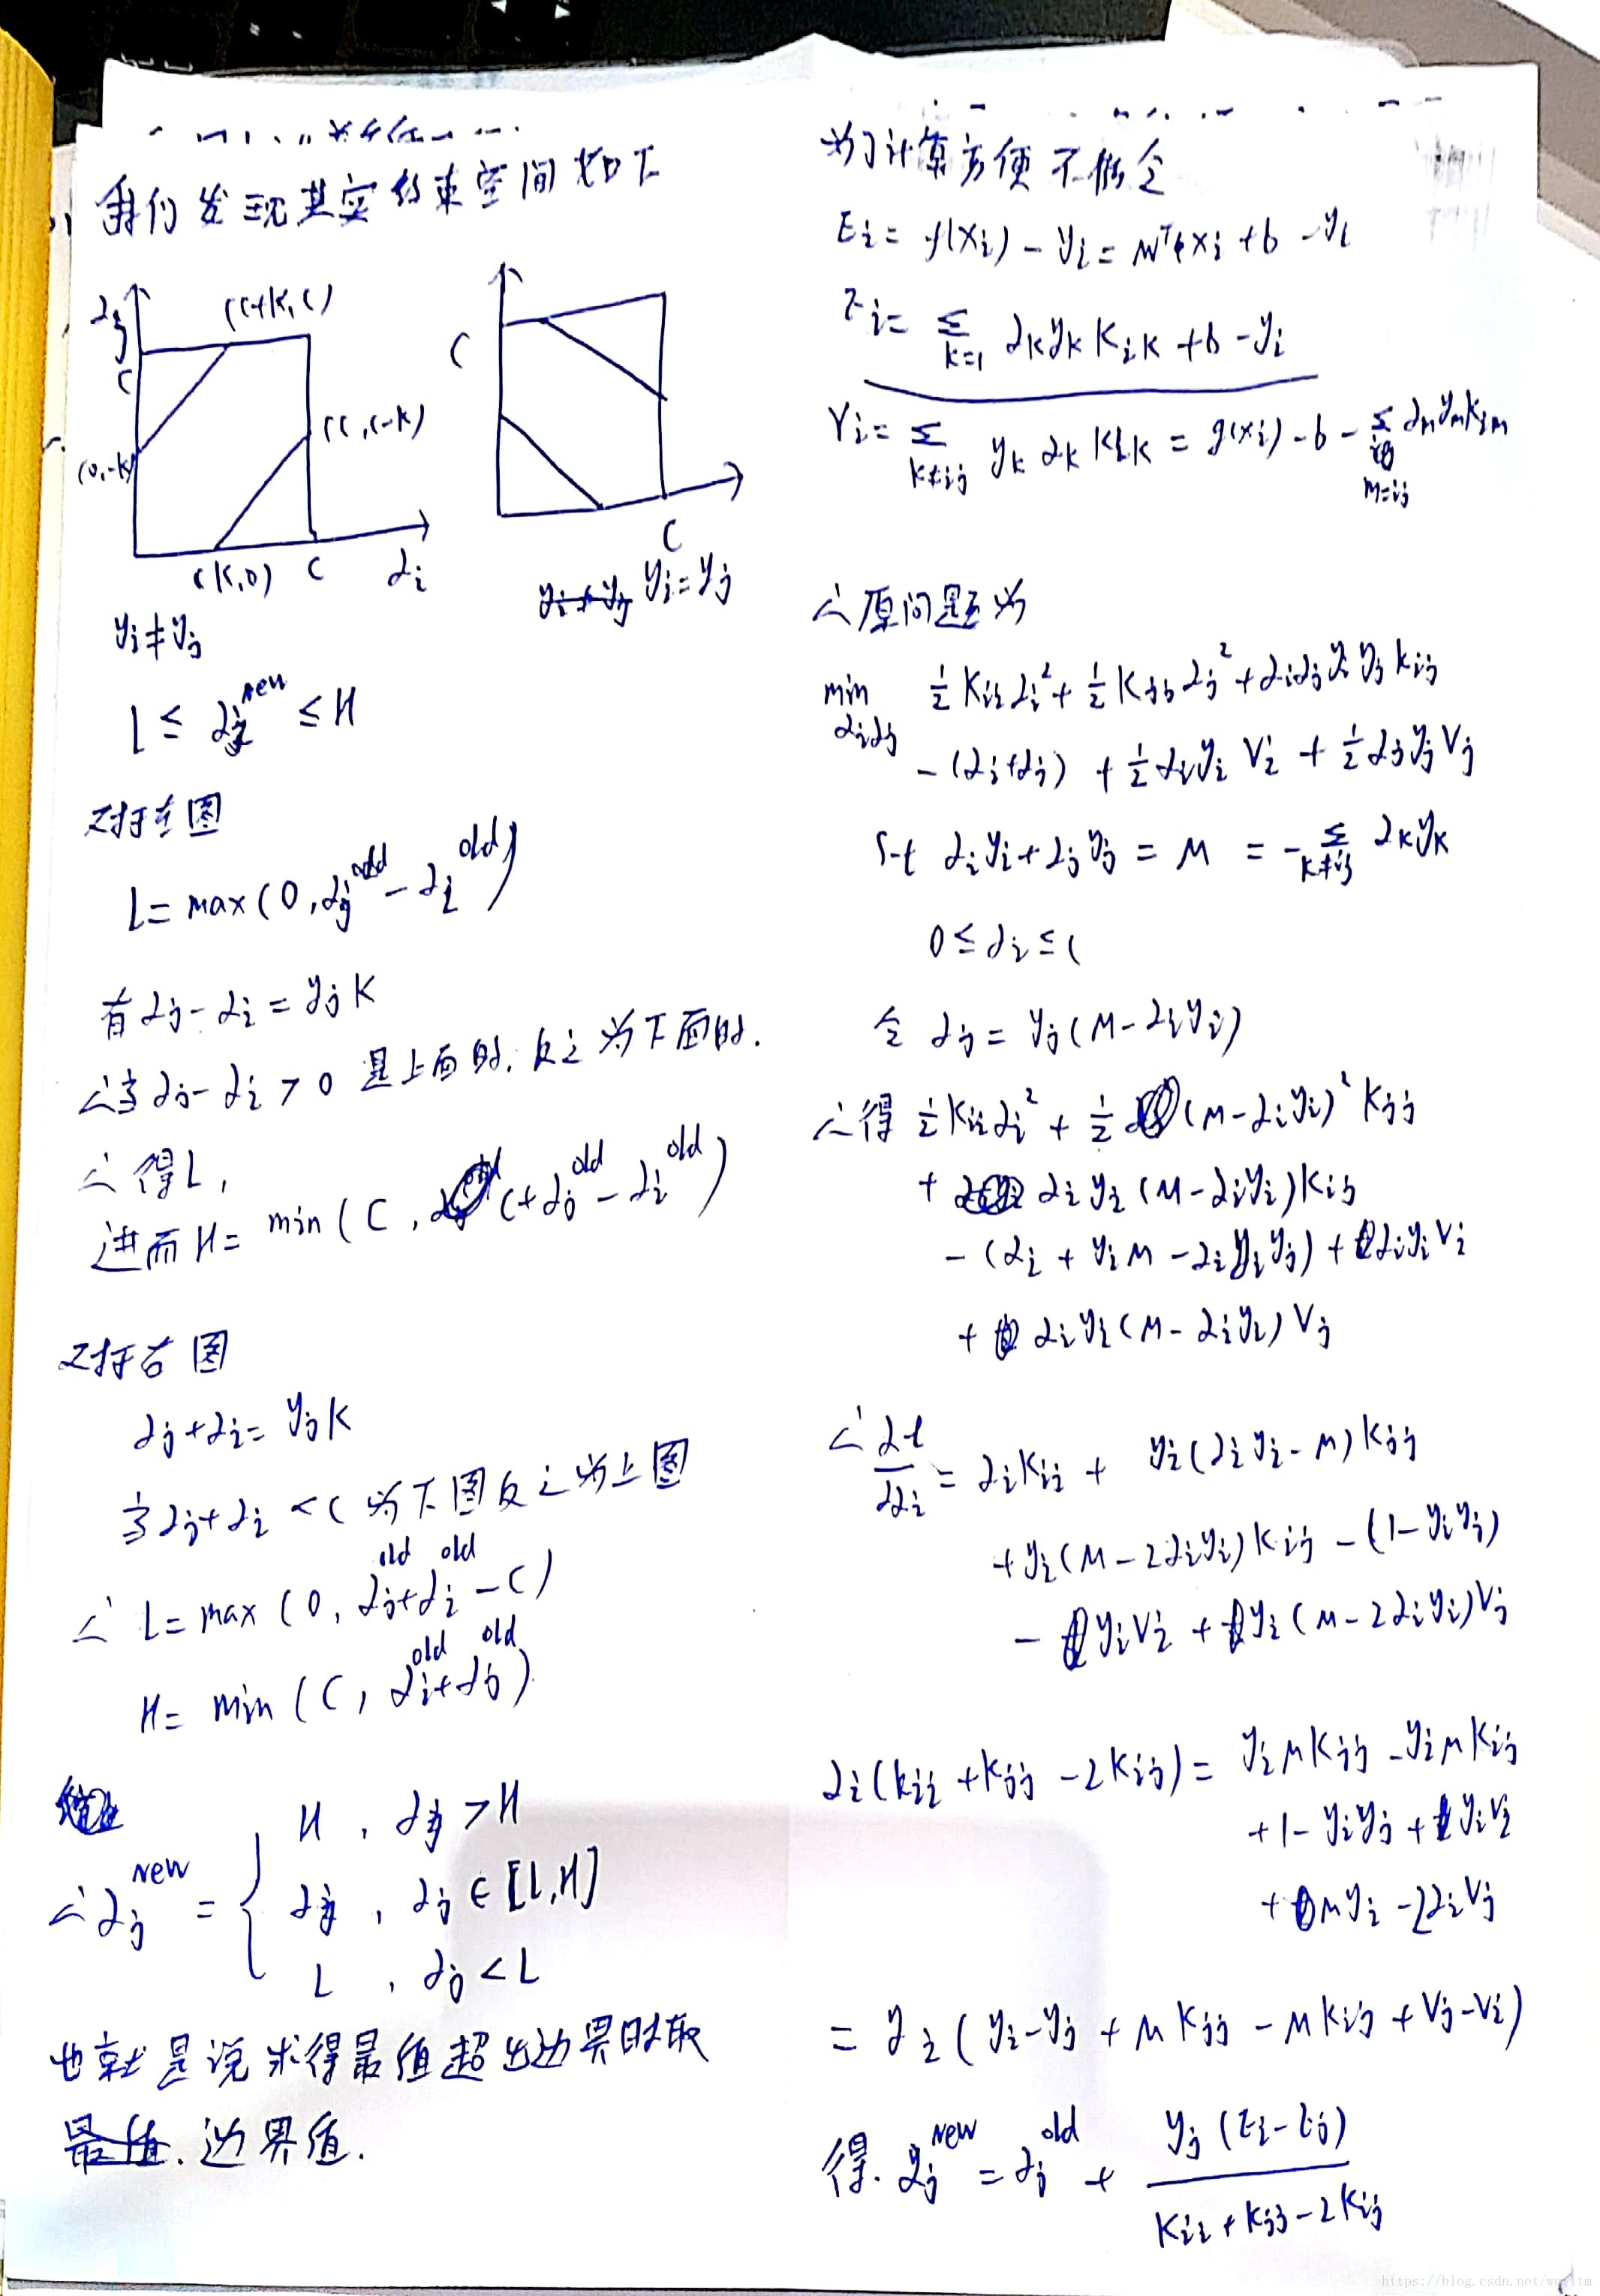 我们发现其实约束空间如下
αj
(C+K,C)
C
(0,-K)
(C,C-K)
(K,0)
C
αi
yi≠yj
C
C
yi=yj
L ≤ αj^new ≤ H
对于左图
L= max(0, αj^old - αi^old)
有 αj - αi = yjK
∴当 αj - αi > 0 是上面时. 反之为下面时.
∴得L,
进而 H= min(C, C+αj^old - αi^old)
对于右图
αj+αi= yjK
当αj+αi <C 为下图反之为上图
∴ L= max(0, αj^old+αi^old -C)
H= min(C, αi^old+αj^old)
∴αj^new = { H , αj >H
αj , αj ∈ [L,H]
L , αj <L
也就是说求得最值超出边界时取
边界值.
为了计算方便不妨令
Ei= g(xi) - yi = w^Tφxi +b -yi
Ei= Σ_{k=1} αkyk Kik +b -yi
Vi= Σ_{k≠ij} yk αk Kik = g(xi) -b - Σ_{m=ij} αmymKim
∴原问题为
min_{αiαj} ½Kiiαi²+½Kjjαj²+αiαjyiyjKij
-(αi+αj) +½αiyiVi +½αjyjVj
s.t αiyi+αjyj = M = -Σ_{k≠ij} αkyk
0≤αi≤C
令 αj = yj(M-αiyi)
∴得 ½Kiiαi² + ½(M-αiyi)²Kjj
+ αiyi(M-αiyi)Kij
-(αi + yiM -αiyiyj) + αiyiVi
+ αiyi(M-αiyi)Vj
∴ ∂L/∂αi = αiKii + yi(αiyi-M)Kjj
+yi(M-2αiyi)Kij -(1-yiyj)
- yiVi + yi(M-2αiyi)Vj
αi(Kii+Kjj-2Kij)= yiMKjj -yiMKij
+1-yiyj + yiVi
+ Myi -2αiVj
= yi(yi-yj+MKjj-MKij+Vj-Vi)
得. αj^new = αj^old + yj(Ei-Ej)/(Kii+Kjj-2Kij)
https://blog.csdn.net/wqyltm